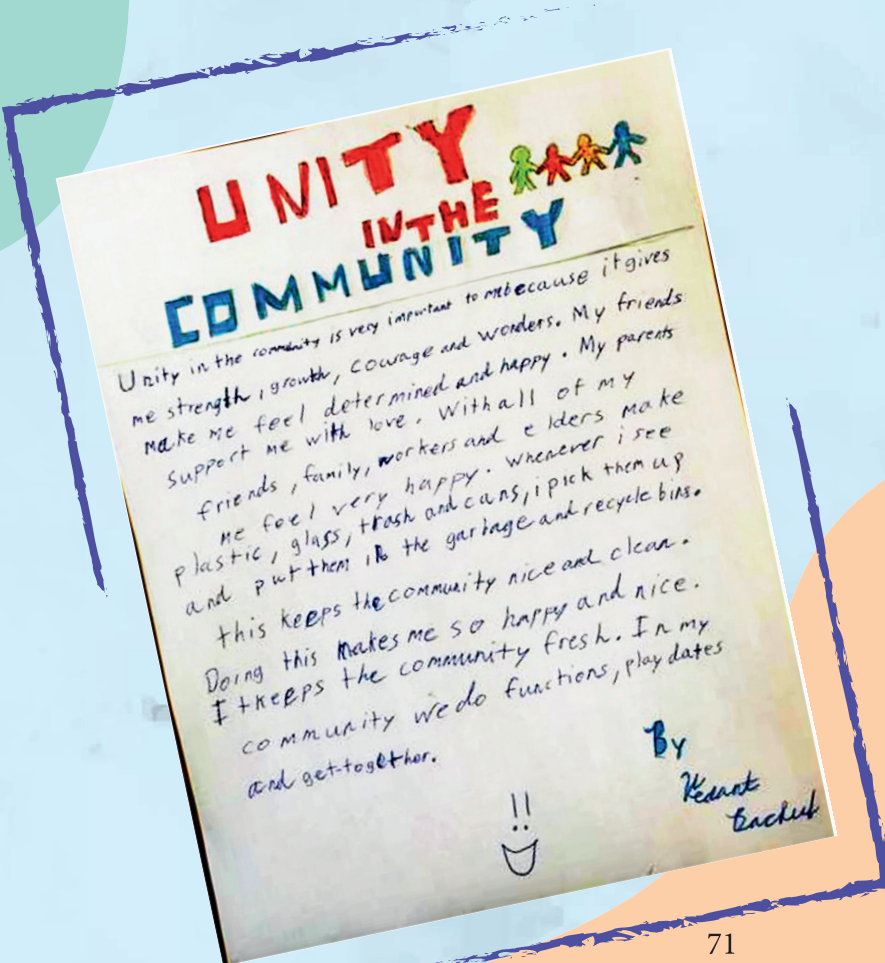 UNITY
IN THE
COMMUNITY
Unity in the commenity is very important to me because it gives
me strength, growth, courage and wonders. My friends
make me feel determined and happy. My parents
support me with love. With all of my
friends, family, workers and elders make
me feel very happy. whenever i see
plastic, glass, trash and cans, i pick them up
and put them in the garbage and recycle bins.
this keeps the community nice and clean.
Doing this makes me so happy and nice.
It keeps the community fresh. In my
community we do functions, play dates
and get-together.
By
Vedant
71